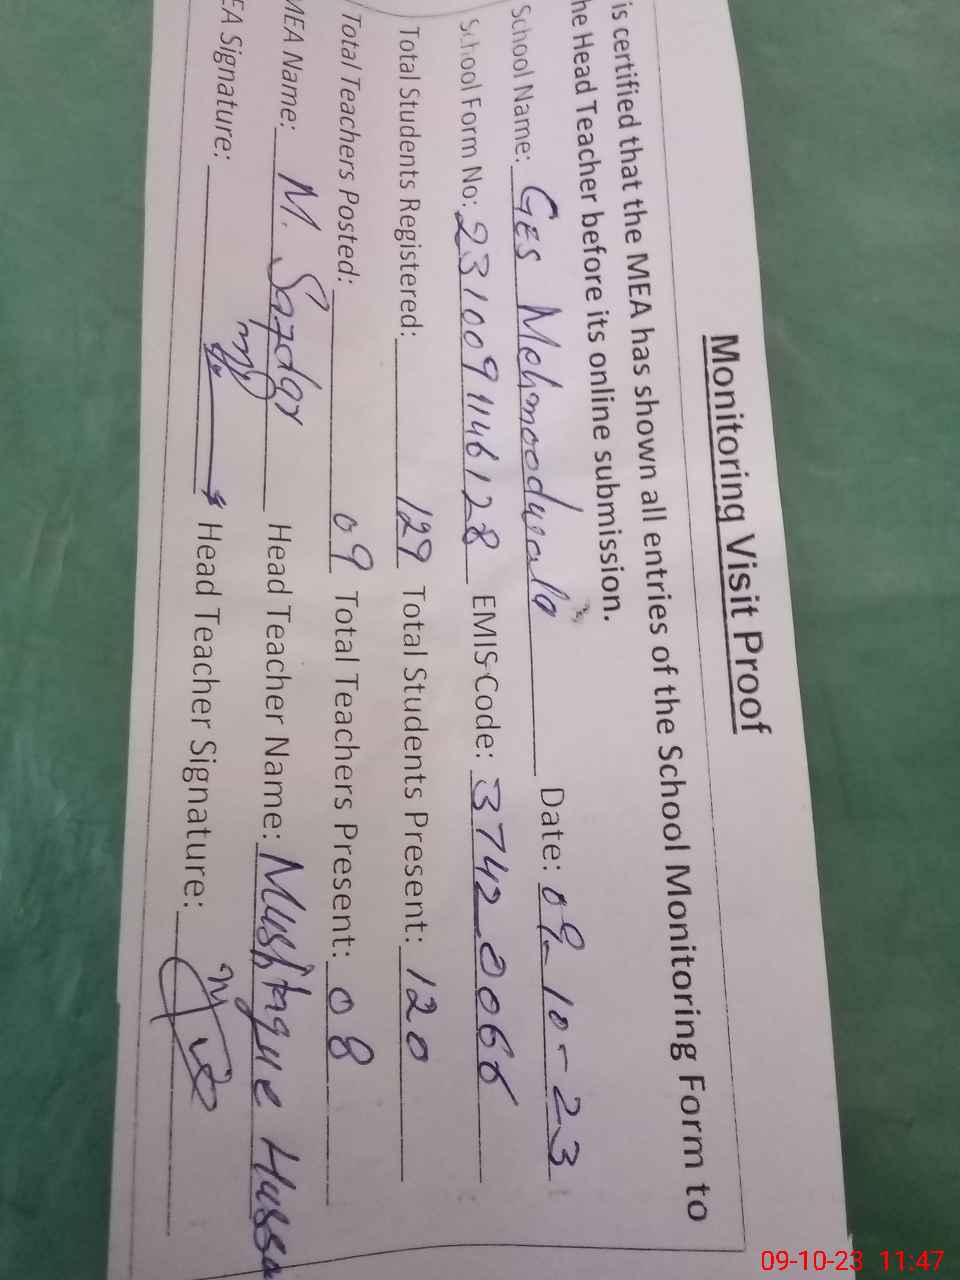 Monitoring Visit Proof
is certified that the MEA has shown all entries of the School Monitoring Form to
he Head Teacher before its online submission.
School Name: GES Mehmoodwala Date: 09-10-23
School Form No: 2310091146128 EMIS Code: 37420066
Total Students Registered: 129 Total Students Present: 120
Total Teachers Posted: 09 Total Teachers Present: 08
MEA Name: M. Safdar Head Teacher Name: Mushtaque Hussa
EA Signature: Head Teacher Signature:
09-10-23 11:47